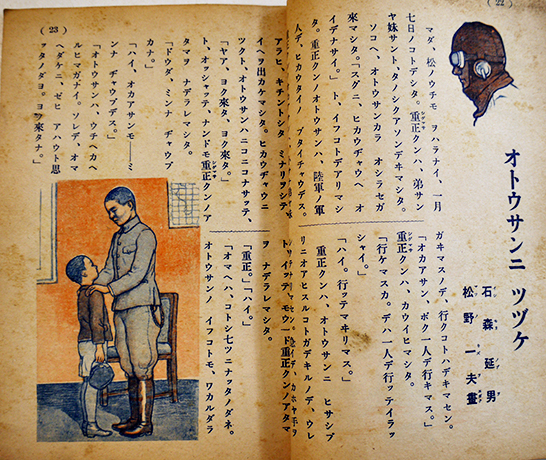 ( 22 )
オトウサンニ ツヅケ
石森延男
松野一夫畫
マダ、松ノウチモ ヲハラナイ、一月
七日ノコトデシタ。重正クンハ、弟サン
ヤ妹サント、タノシクアソンデヰマシタ。
ソコヘ、オトウサンカラ オシラセガ
來マシタ。「スグニ、ヒカウヂャウヘ オ
イデナサイ。」ト、イフコトデアリマシ
タ。重正クンノオトウサンハ、陸軍ノ軍
人デ、ヒカウタイノ ブタイチャウデス。
ガヰマスノデ、行クコトハデキマセン。
「オカアサン、ボク一人デ行キマス。」
重正クンハ、カウイヒマシタ。
「行ケマスカ。デハ一人デ行ッテイラッ
シャイ。」
「ハイ。行ッテマヰリマス。」
重正クンハ、オトウサンニ ヒサシブ
リニオアヒスルコトガデキルノデ、ウレ
( 23 )
アラヒ キチントシタ ミナリヲシテ
イヘヲ出カケマシタ。ヒカウヂャウニ
ツクト、オトウサンハニコニコナサッテ、
「ヤア、ヨク來タ、ヨク來タ。」
ト、オッシャッテ、ナンドモ重正クンノア
タマヲ ナデラレマシタ。
「ドウダ、ミンナ ヂャウブ
カナ。」
「ハイ、オカアサンモ――ミ
ンナ ヂャウブデス。」
「オトウサンハ、ウチヘカヘ
ルヒマガナイ。ソレデ、オマ
ヘダケニ、ゼヒ アハウト思
ッタノダヨ。ヨク來タナ。」
ト イッテ モウ一ド重正クンノアタマ
ヲ ナデラレマシタ。
「重正。」「ハイ。」
「オマヘハ、コトシ七ツニナッタノダネ。
オトウサンノ イフコトモ、ワカルダラ